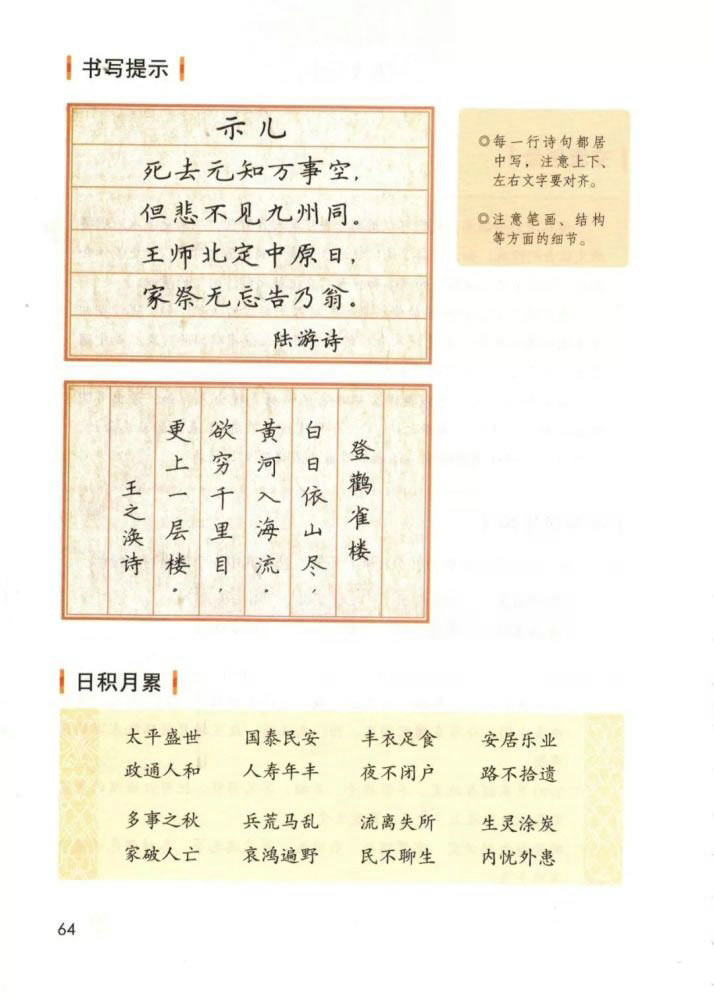 书写提示
示儿
死去元知万事空，
但悲不见九州同。
王师北定中原日，
家祭无忘告乃翁。
陆游诗
◎每一行诗句都居
中写，注意上下、
左右文字要对齐。
◎注意笔画、结构
等方面的细节。
登鹳雀楼
白日依山尽，
黄河入海流。
欲穷千里目，
更上一层楼。
王之涣诗
日积月累
太平盛世 国泰民安 丰衣足食 安居乐业
政通人和 人寿年丰 夜不闭户 路不拾遗
多事之秋 兵荒马乱 流离失所 生灵涂炭
家破人亡 哀鸿遍野 民不聊生 内忧外患
64